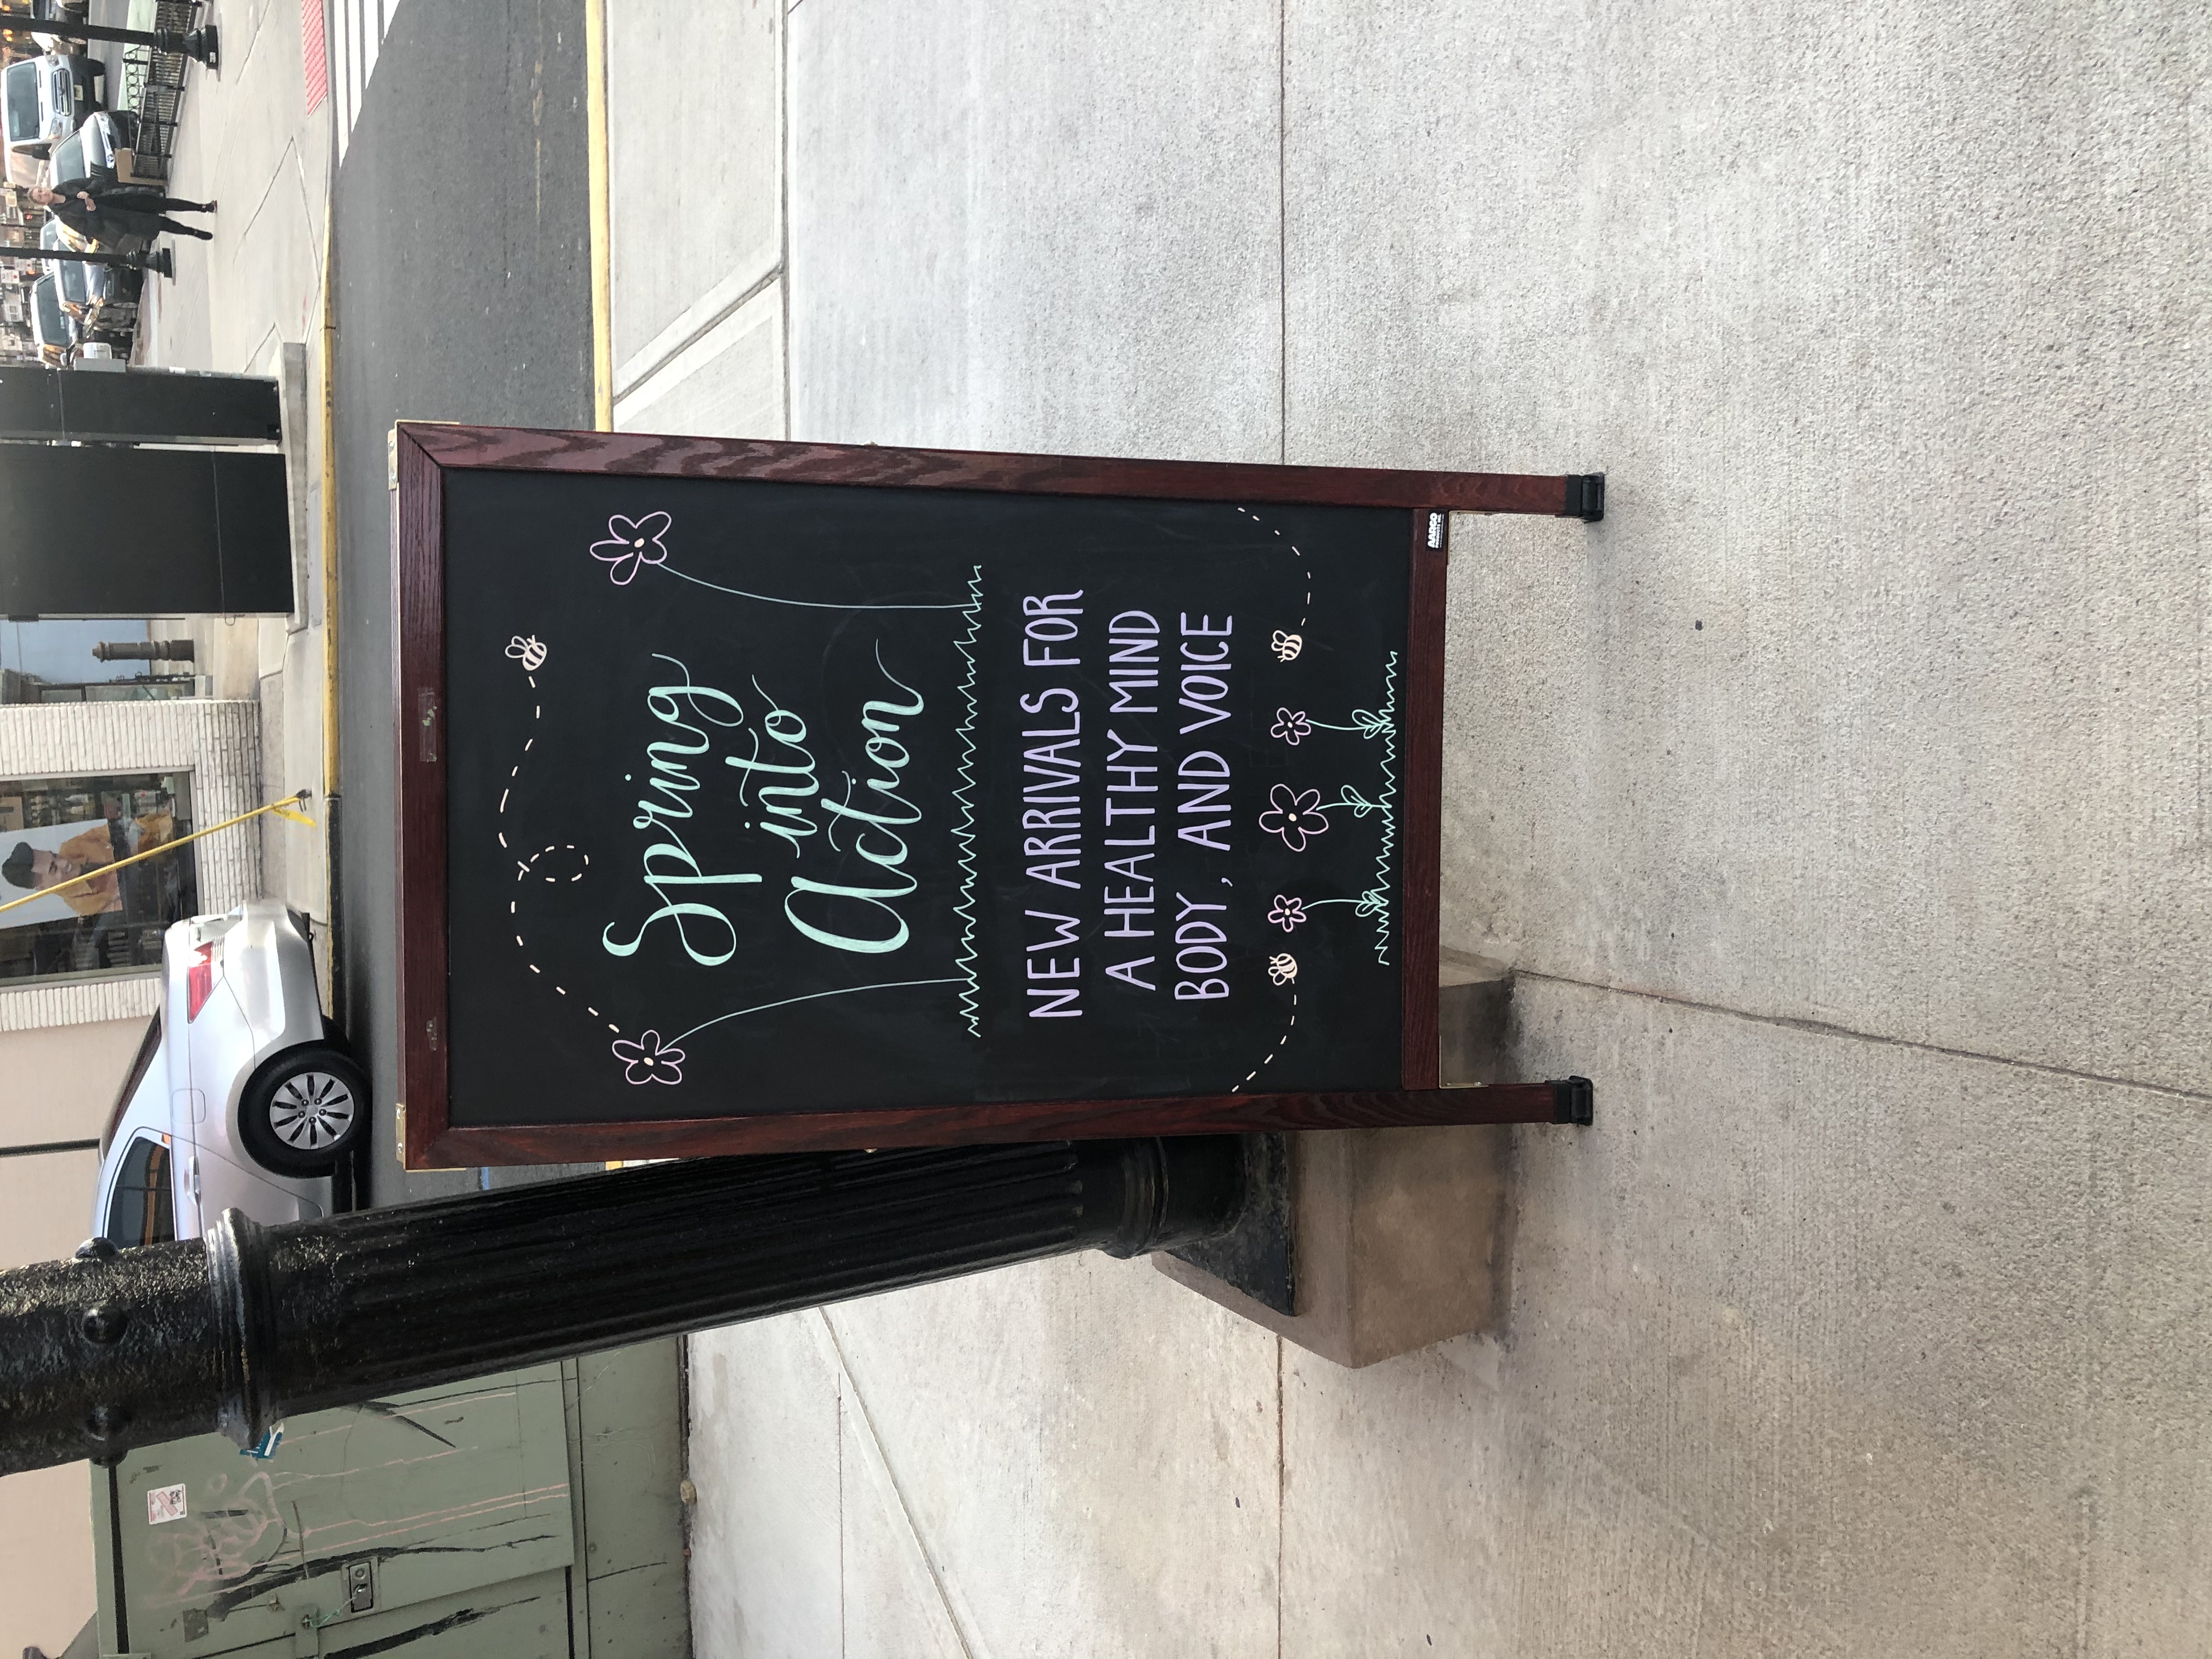 Spring
into
Action
NEW ARRIVALS FOR
A HEALTHY MIND
BODY, AND VOICE
AARCO
PRODUCTS INC.